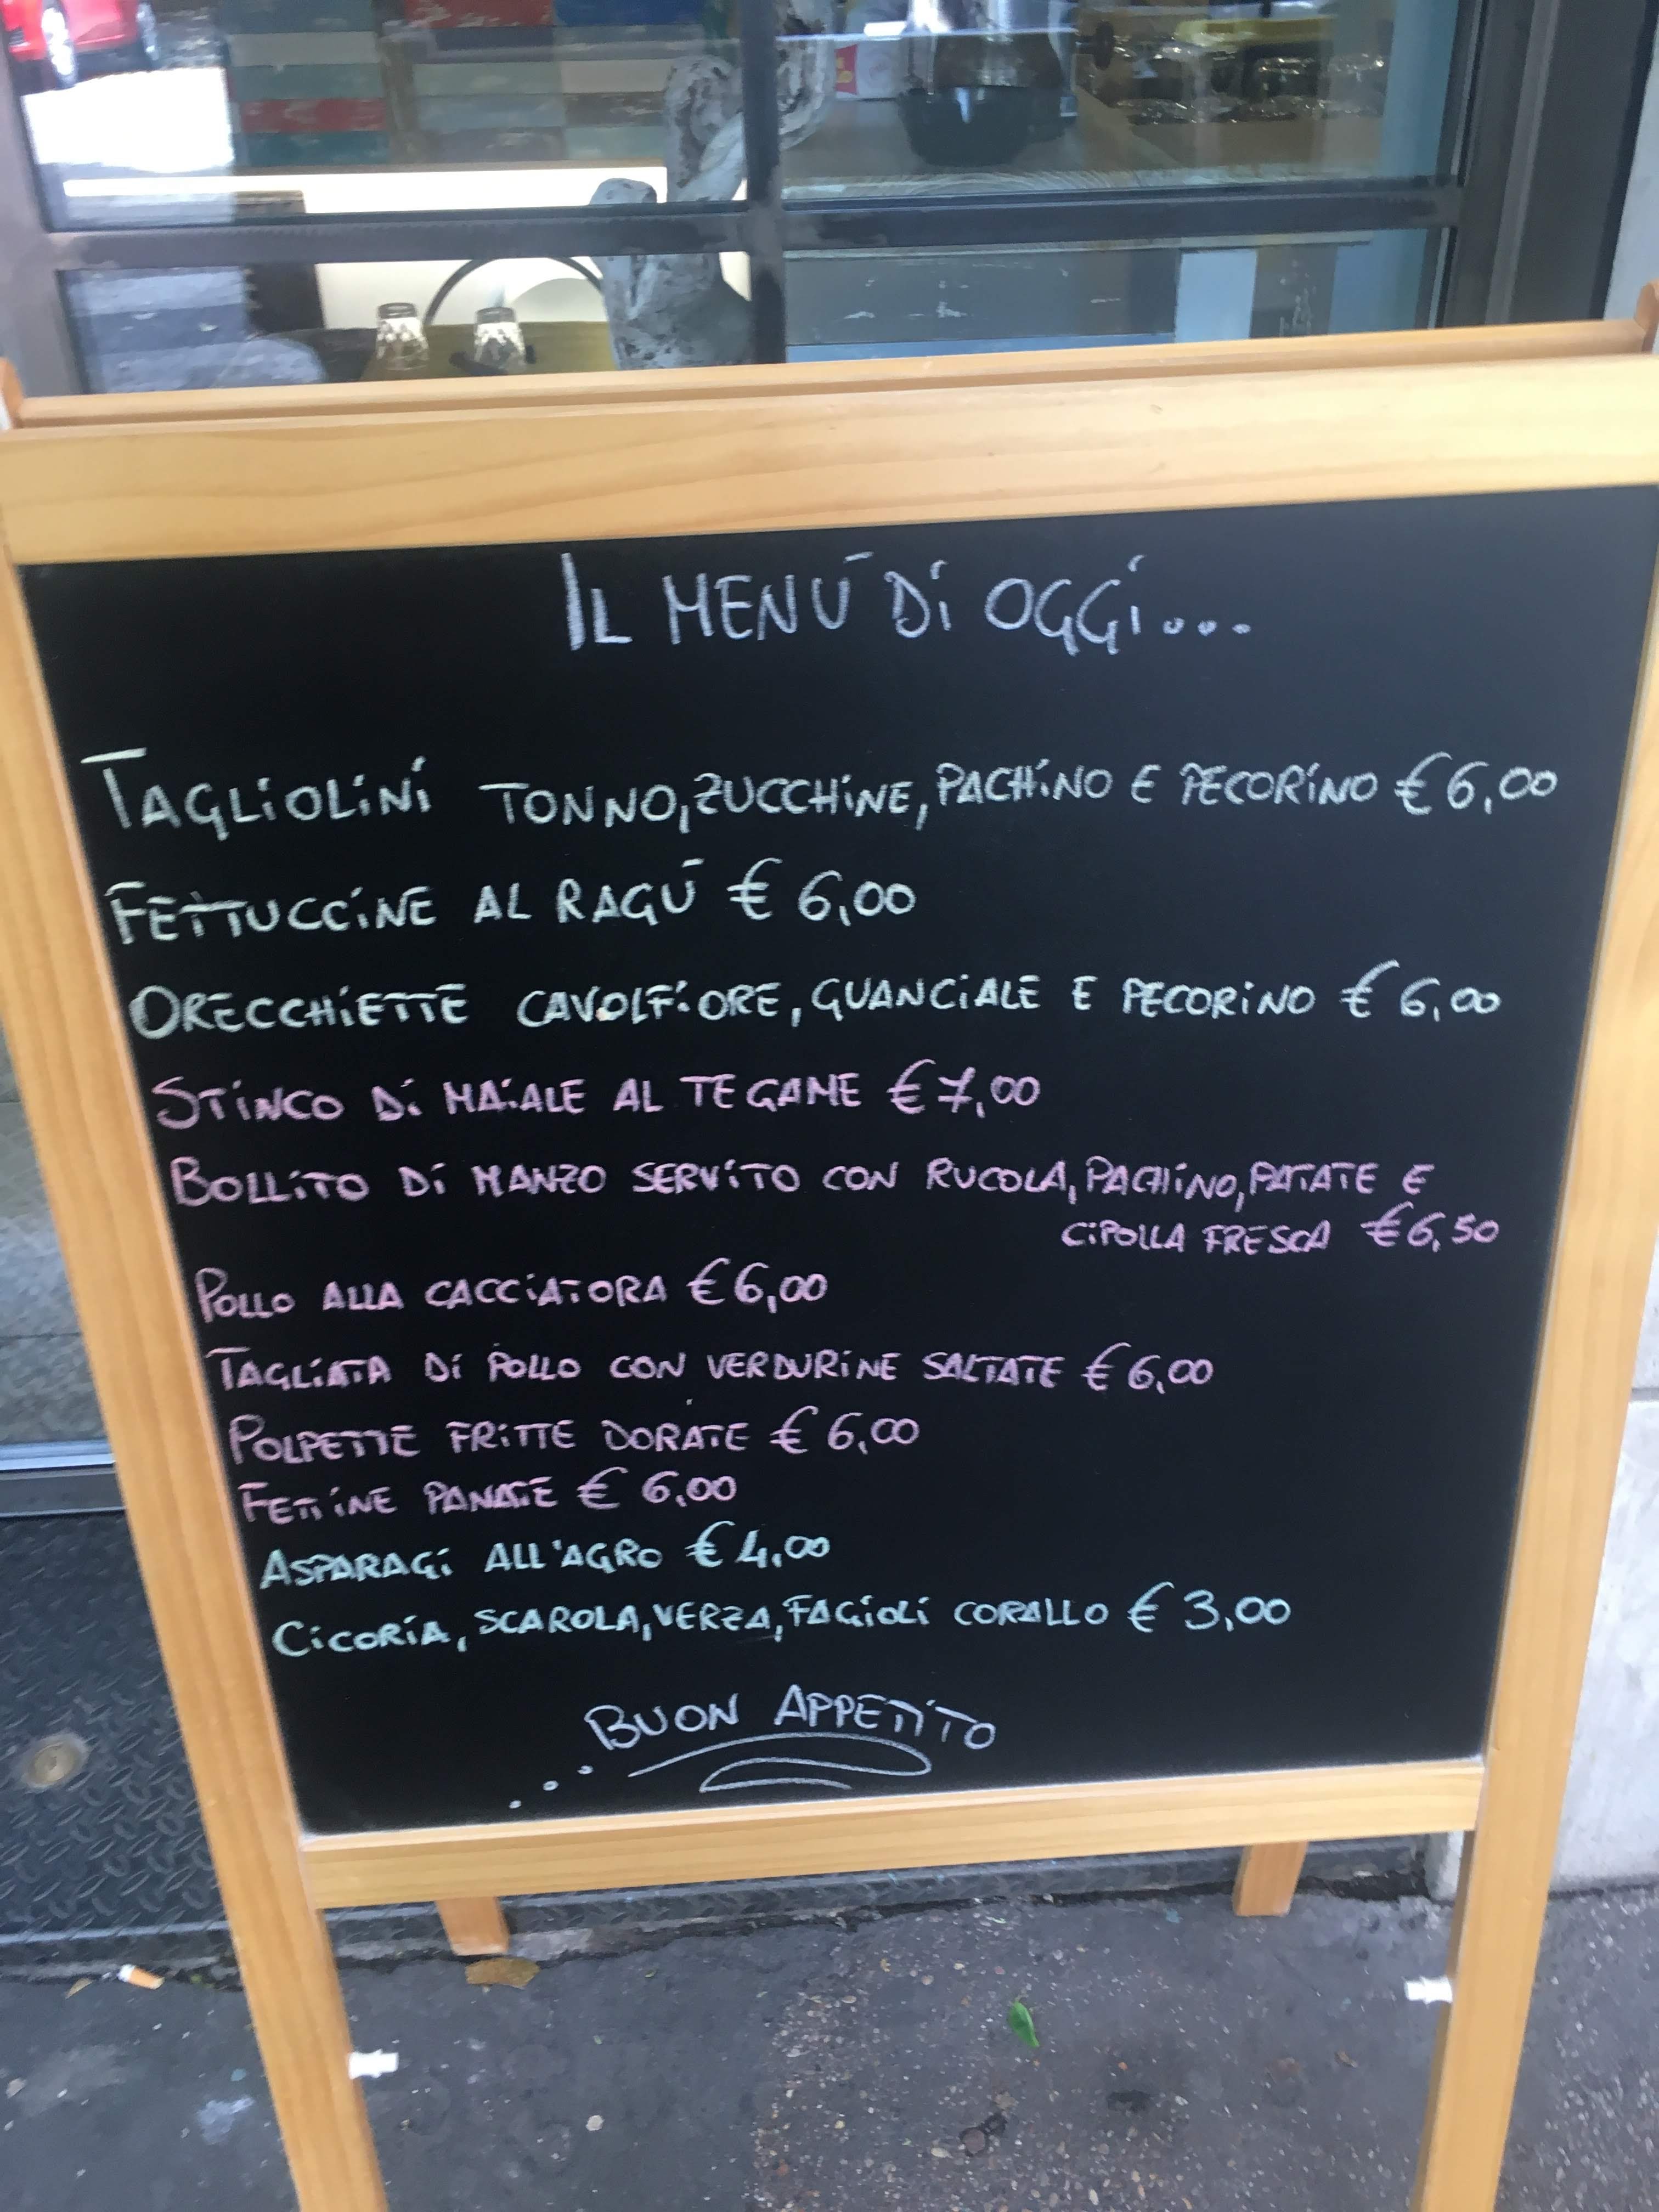 IL MENÚ Di OGGi...
TAGLiOLiNi TONNO, ZUCCHiNE, PACHiNO E PECORiNO € 6,00
FETTUCCiNE AL RAGÚ € 6,00
ORECCHiETTE CAVOLFiORE, GUANCiALE E PECORiNO € 6,00
STiNCO Di MAiALE AL TEGAME € 7,00
BOLLiTO Di MANZO SERViTO CON RUCOLA, PACHiNO, PATATE E
CiPOLLA FRESCA € 6,50
POLLO ALLA CACCiATORA € 6,00
TAGLiATA Di POLLO CON VERDURiNE SALTATE € 6,00
POLPETTE FRiTTE DORATE € 6,00
FETTiNE PANATE € 6,00
ASPARAGi ALL'AGRO € 4,00
CiCORiA, SCAROLA, VERZA, FAGiOLi CORALLO € 3,00
BUON APPETiTO
...